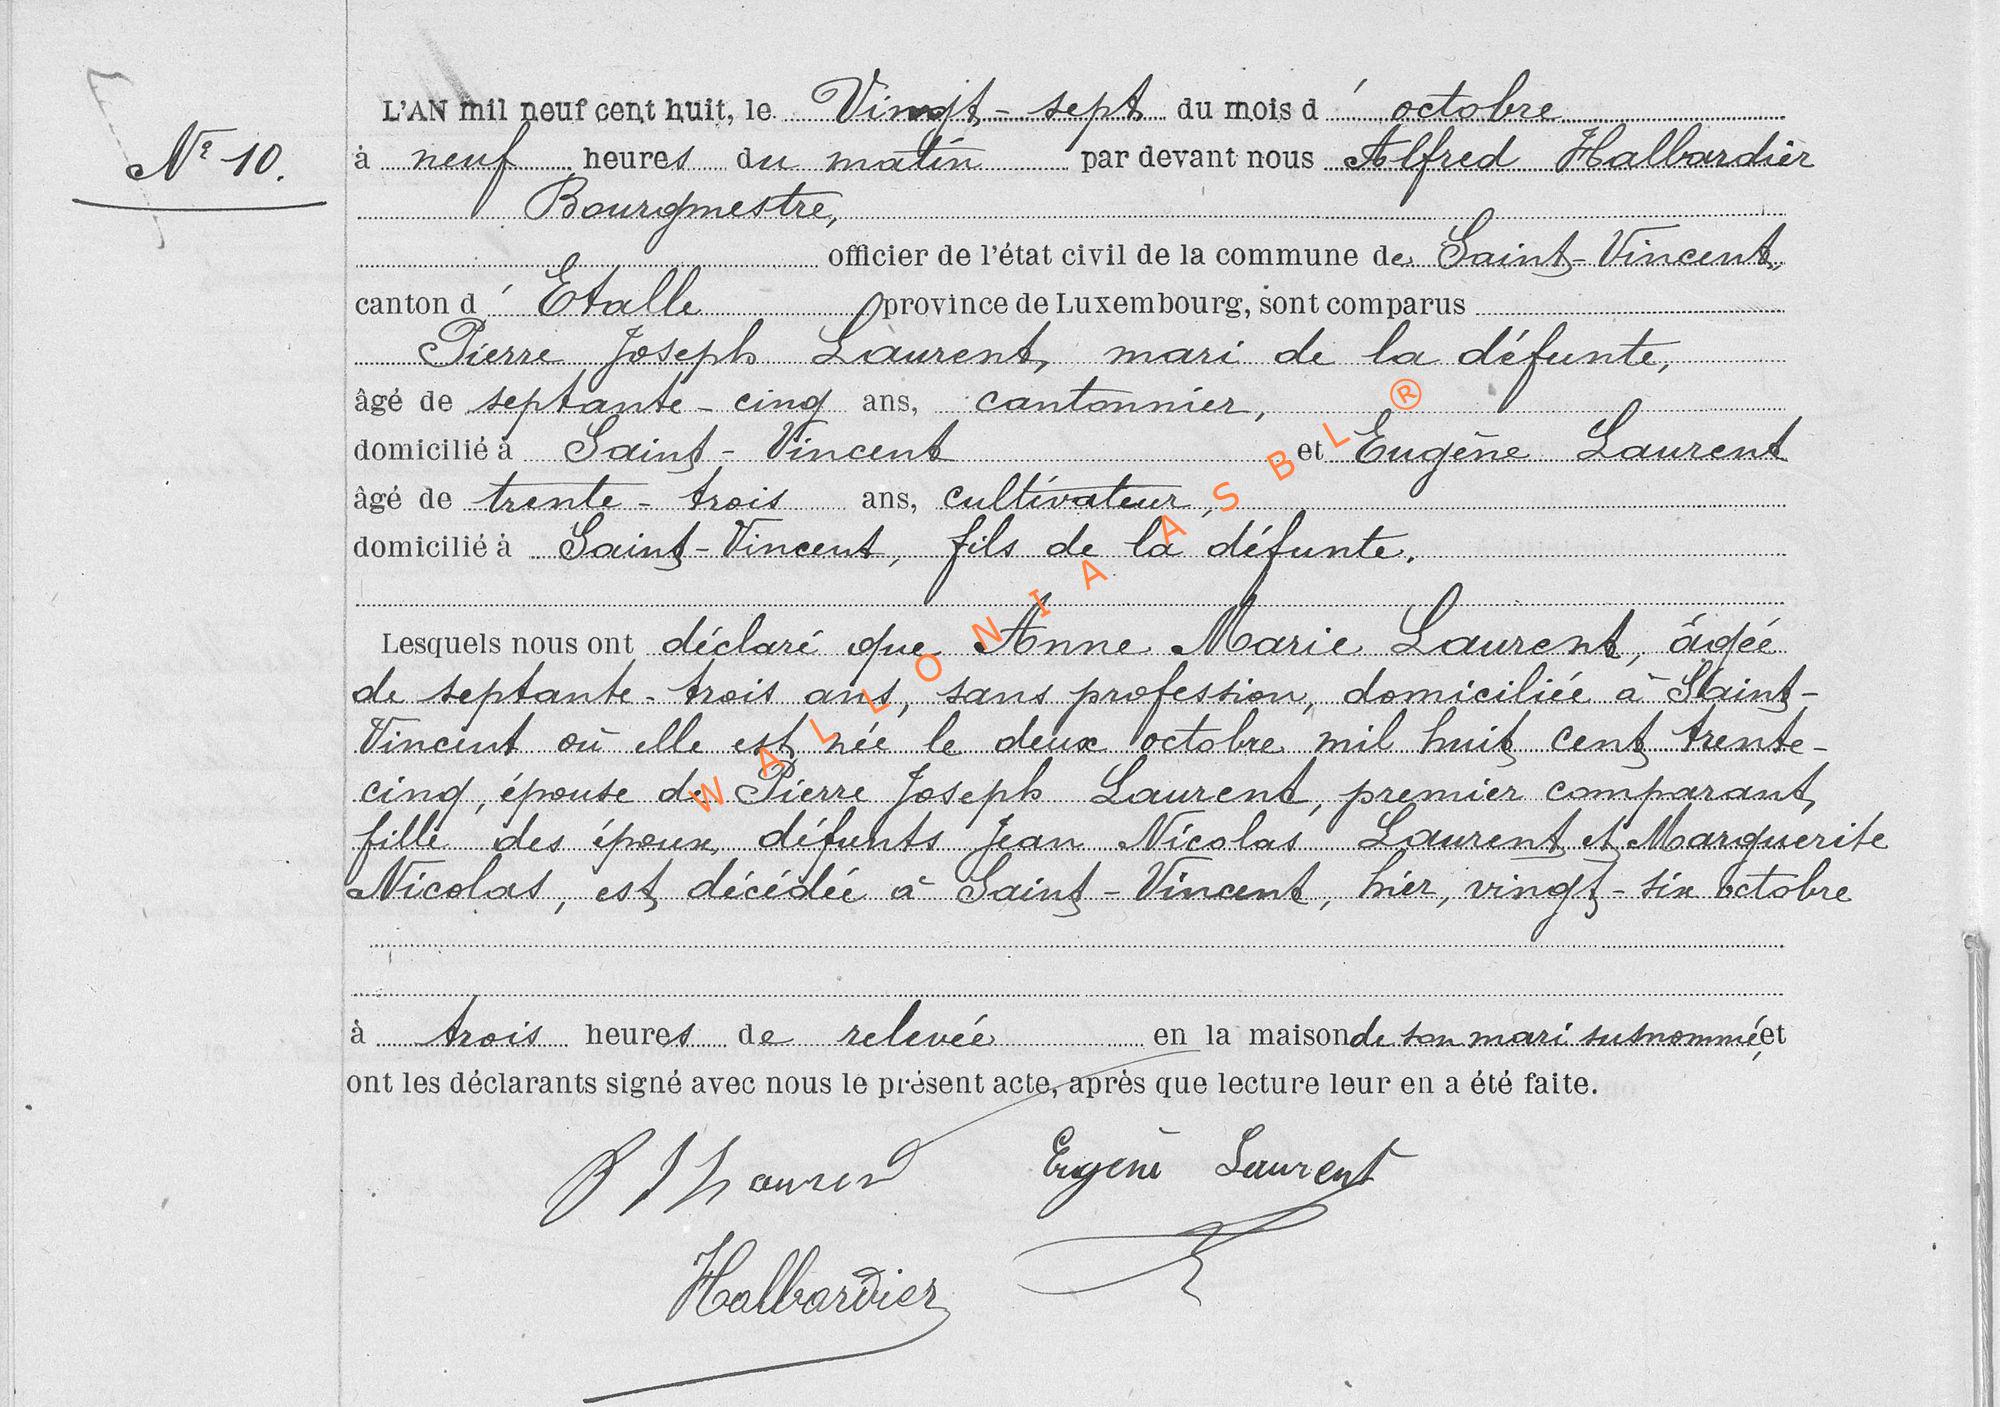 Nº 10.
L'AN mil neuf cent huit, le Vingt-sept du mois d' octobre
à neuf heures du matin par devant nous Alfred Halbardier
Bourgmestre,
officier de l'état civil de la commune de Saint-Vincent,
canton d' Etalle province de Luxembourg, sont comparus
Pierre Joseph Laurent, mari de la défunte,
âgé de septante-cinq ans, cantonnier,
domicilié à Saint-Vincent et Eugène Laurent
âgé de trente-trois ans, cultivateur,
domicilié à Saint-Vincent, fils de la défunte.
Lesquels nous ont déclaré que Anne Marie Laurent, âgée
de septante-trois ans, sans profession, domiciliée à Saint-
Vincent où elle est née le deux octobre mil huit cent trente-
cinq, épouse de Pierre Joseph Laurent, premier comparant,
fille des époux défunts Jean Nicolas Laurent et Marguerite
Nicolas, est décédée à Saint-Vincent, hier, vingt-six octobre
à trois heures de relevée en la maison de son mari susnommé, et
ont les déclarants signé avec nous le présent acte, après que lecture leur en a été faite.
P J Laurent Eugène Laurent
Halbardier
WALLONIA ASBL ®